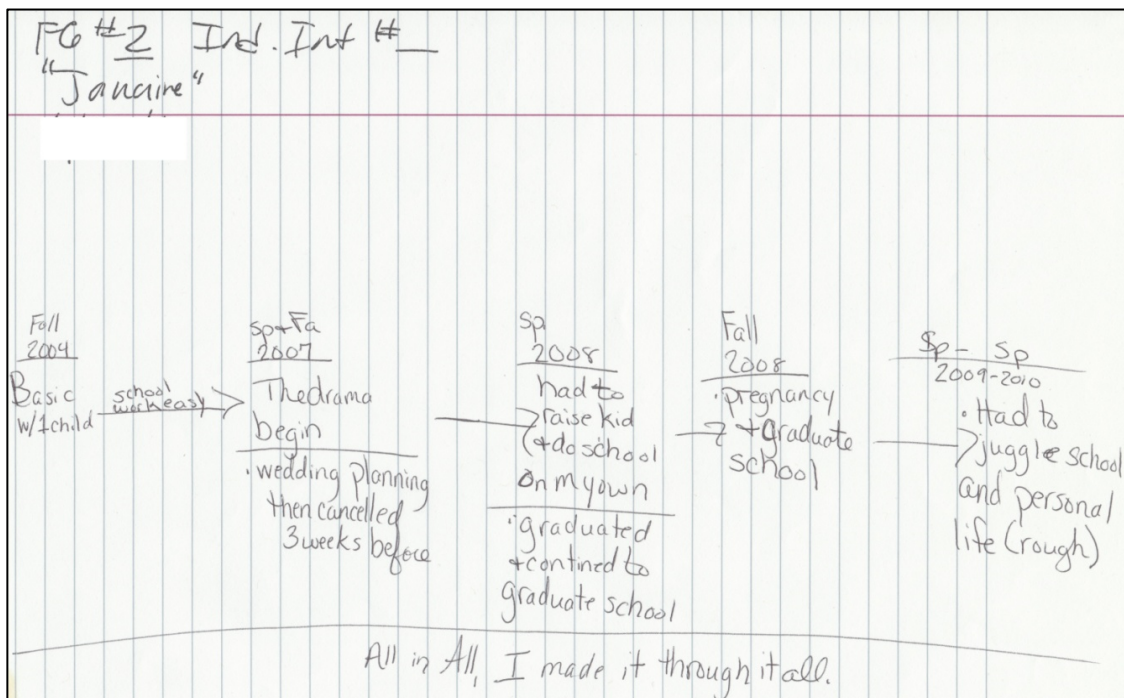 FG #2 Ind. Int #_
"Janaire"
Fall
2004
Basic
w/1child
school
work easy
Sp+Fa
2007
The drama
begin
· wedding planning
then cancelled
3 weeks before
Sp
2008
had to
raise kid
+ do school
on my own
· graduated
+ contined to
graduate school
Fall
2008
· pregnancy
+ graduate
school
Sp - Sp
2009-2010
· Had to
juggle school
and personal
life (rough)
All in All, I made it through it all.